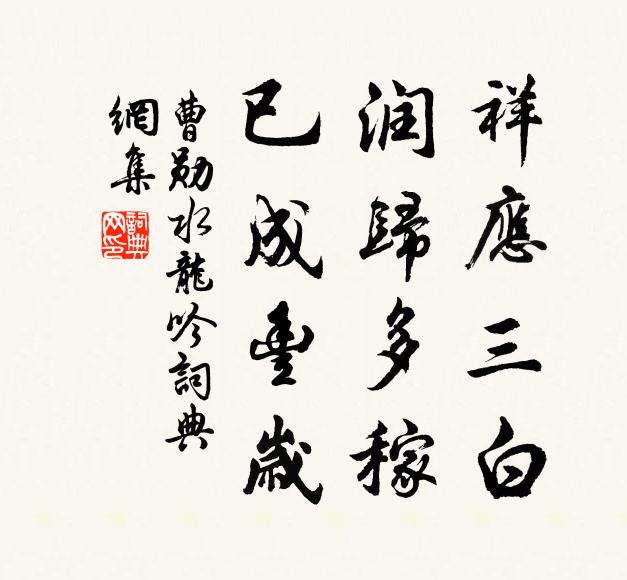 祥應三白
润歸多稼
已成豊歲
曹勋水龍吟詞典
網集
詞典網印